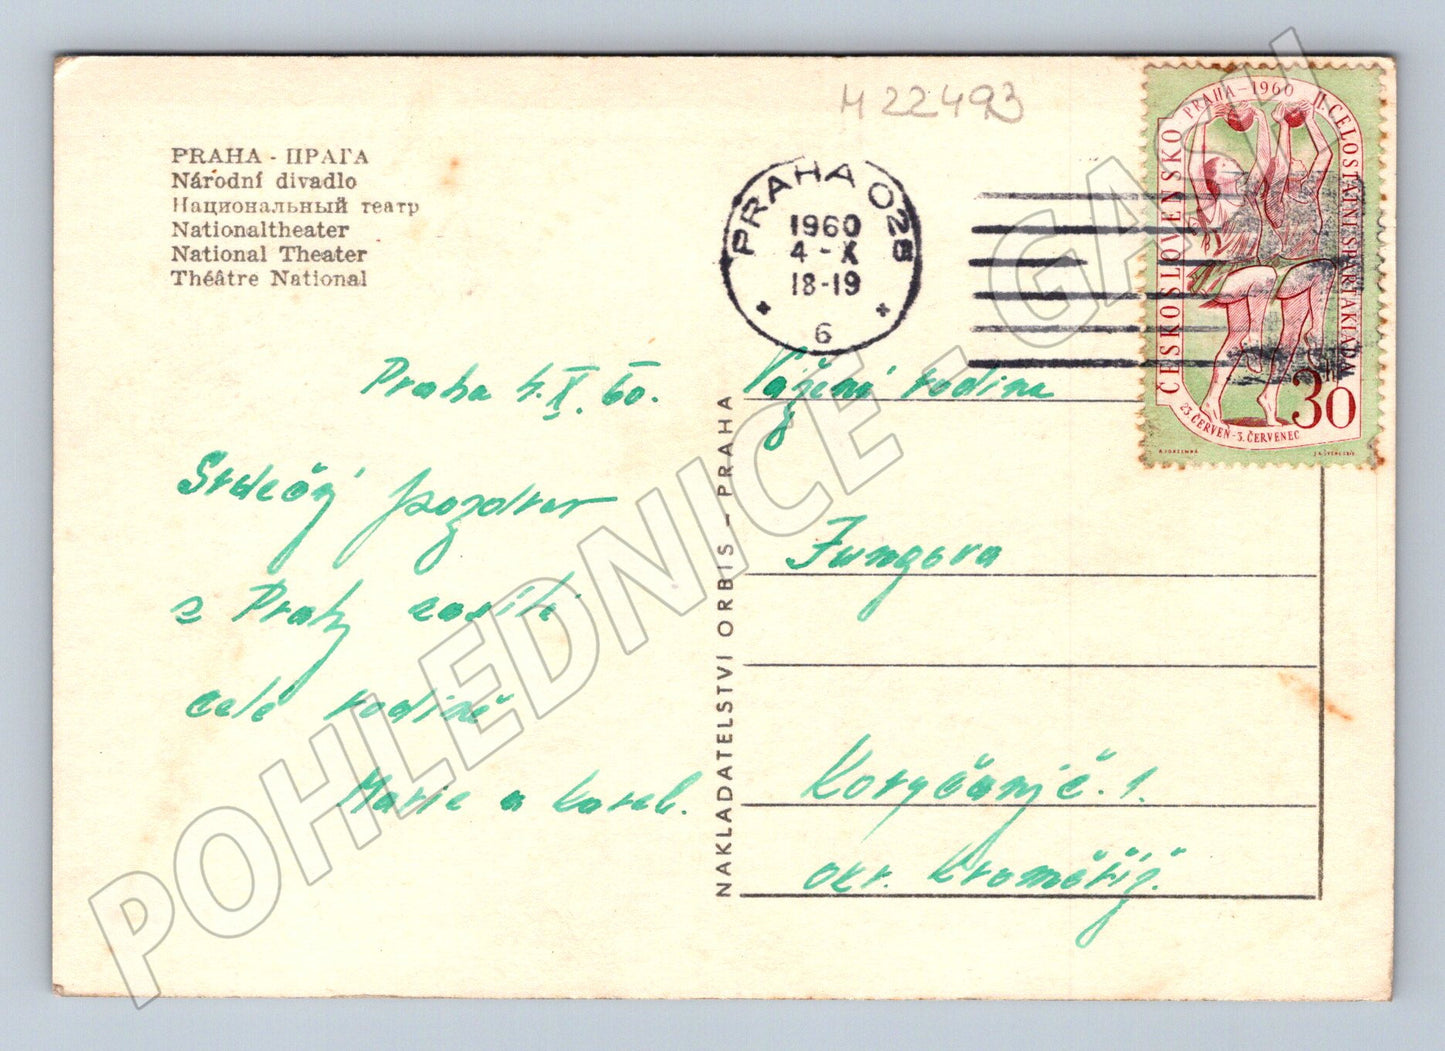 M 22493
PRAHA - ПРАГА
Národní divadlo
Национальный театр
Nationaltheater
National Theater
Théâtre National
PRAHA 025
1960
4 - X
18-19
6
ČESKOSLOVENSKO
PRAHA - 1960
II. CELOSTÁTNÍ SPARTAKIÁDA
23. ČERVEN - 3. ČERVENEC
30
Praha 4. X. 60.
Srdečný pozdrav
z Prahy zasílá
celé rodině
Marie a Karel.
NAKLADATELSTVÍ ORBIS - PRAHA
Vážená rodina
Jungova
Koryčany č. 1.
okr. Kroměříž.
POHLEDNICE - GASH